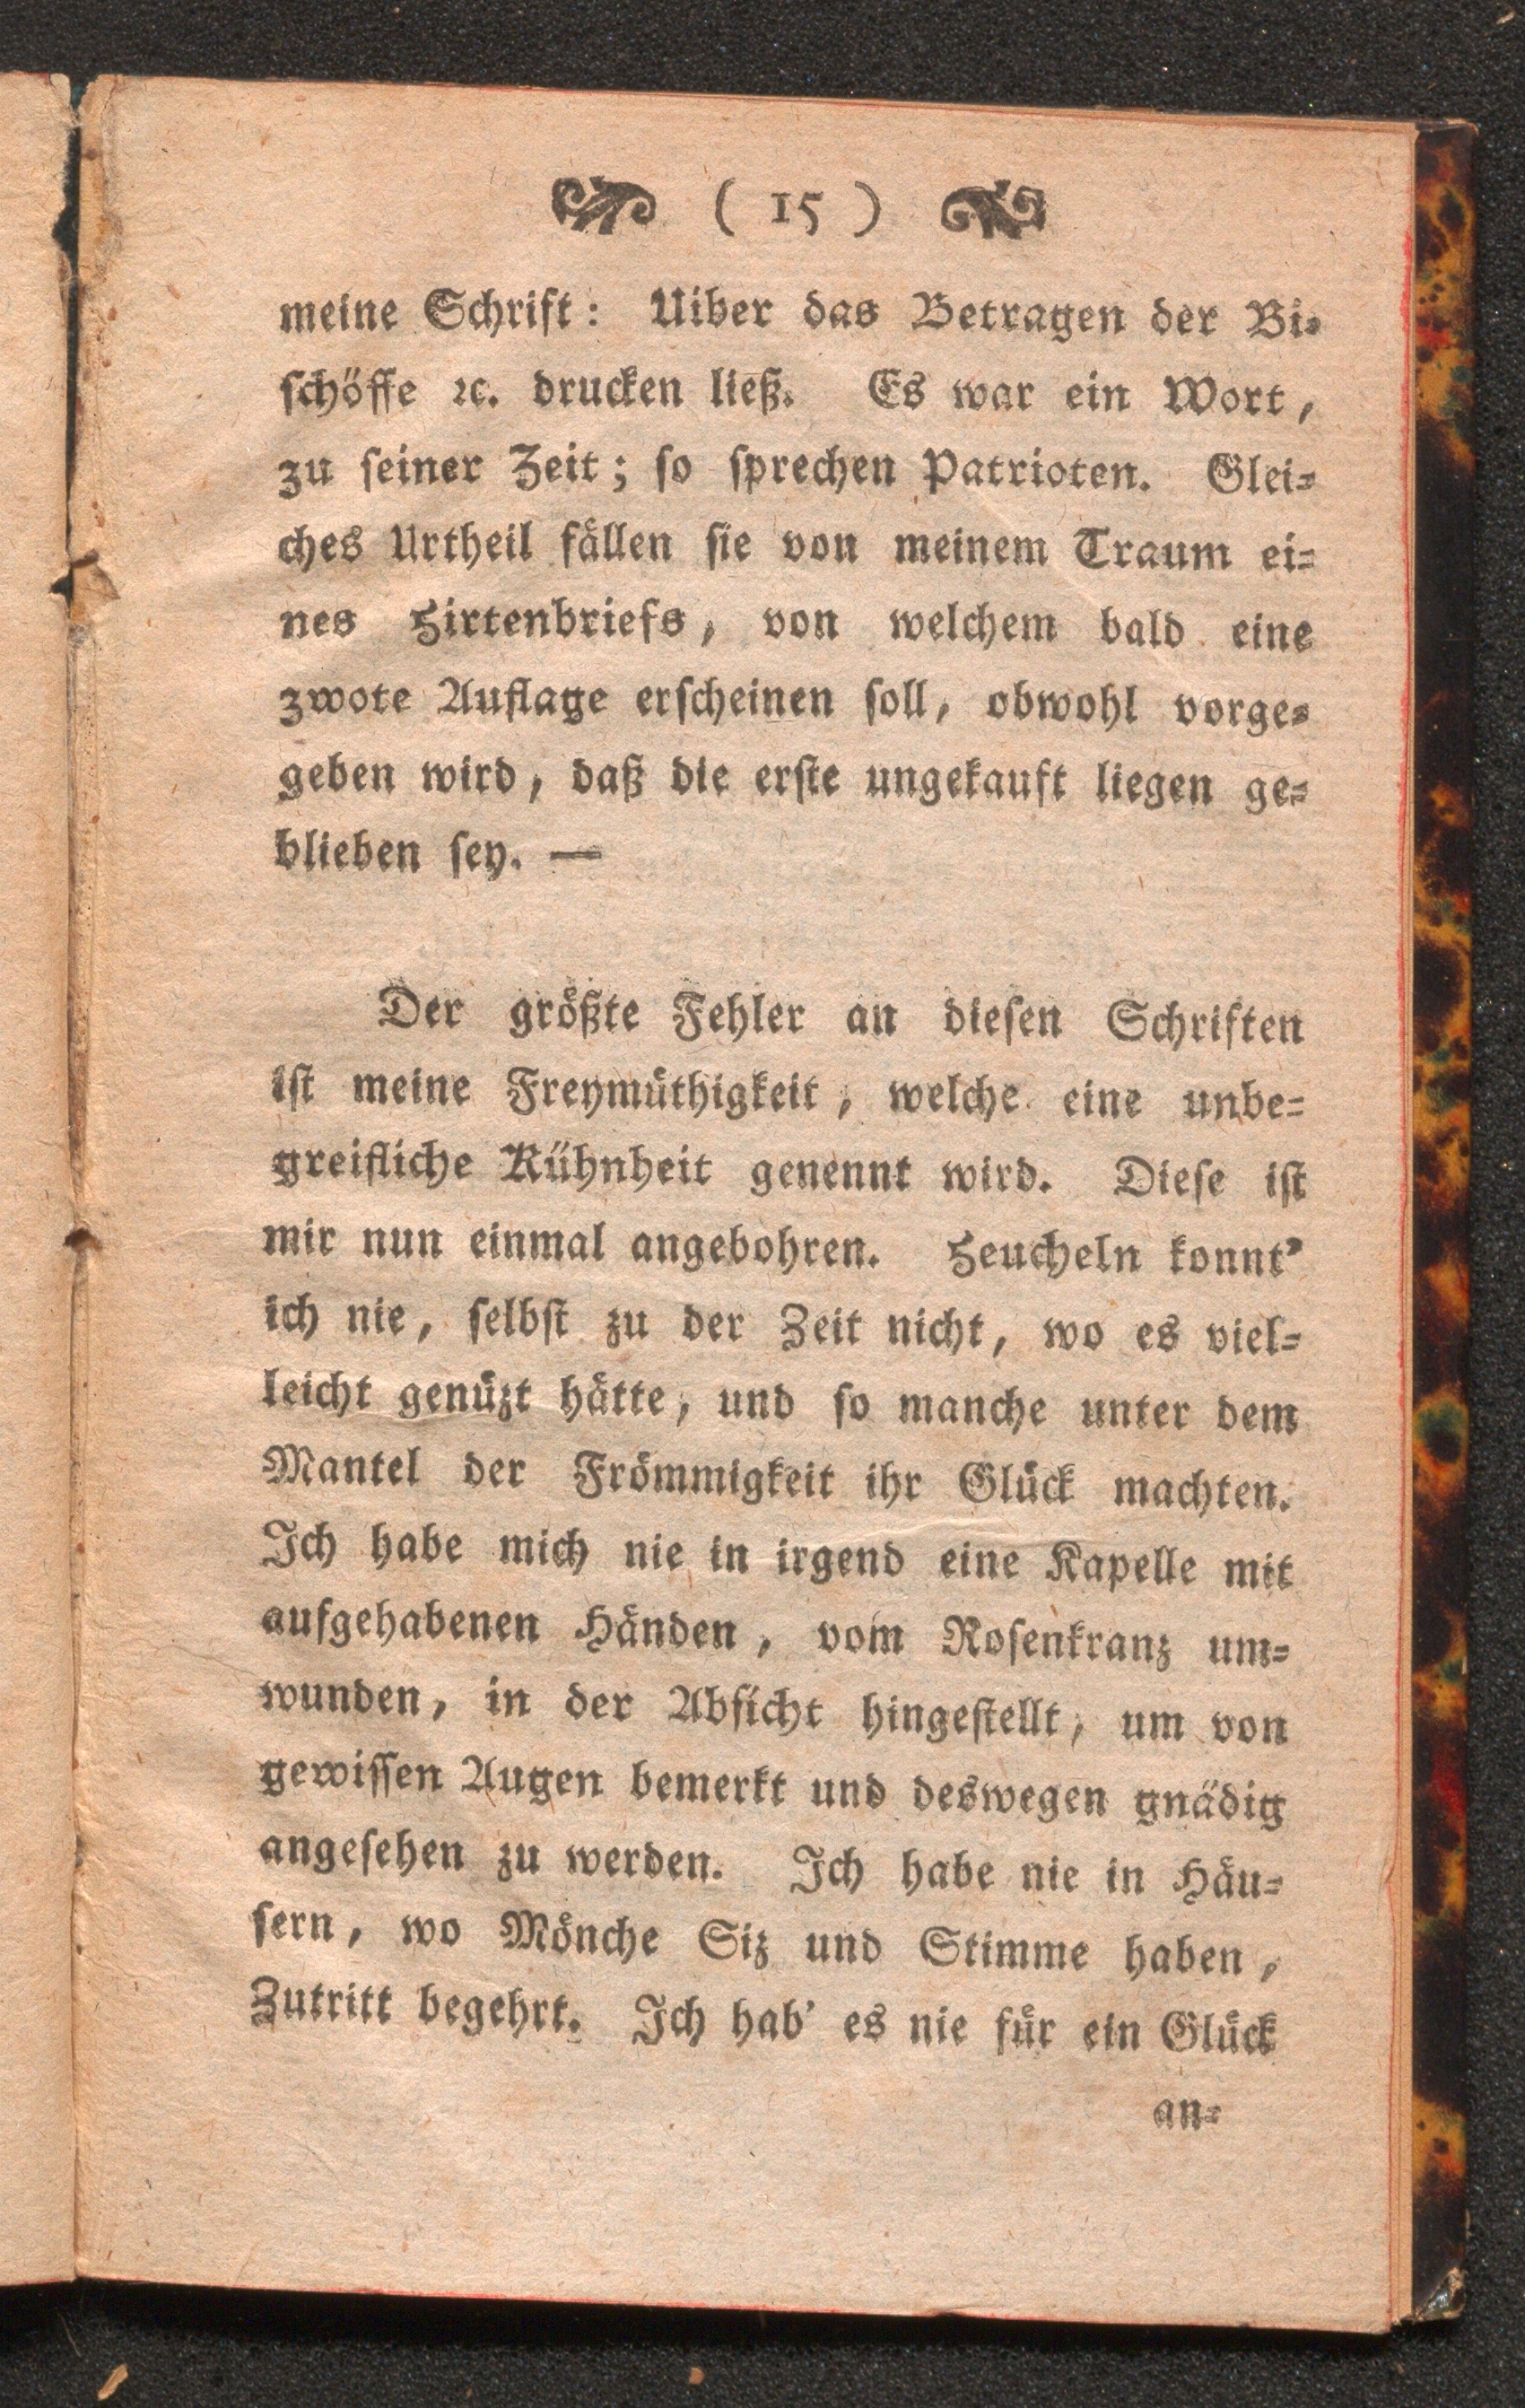 ( 15 )
meine Schrift: Uiber das Betragen der Bi-
schöffe ꝛc. drucken ließ. Es war ein Wort,
zu seiner Zeit; so sprechen Patrioten. Glei-
ches Urtheil fällen sie von meinem Traum ei-
nes Hirtenbriefs, von welchem bald eine
zwote Auflage erscheinen soll, obwohl vorge-
geben wird, daß die erste ungekauft liegen ge-
blieben sey. —
Der größte Fehler an diesen Schriften
ist meine Freymüthigkeit, welche eine unbe-
greifliche Kühnheit genennt wird. Diese ist
mir nun einmal angebohren. Heucheln konnt'
ich nie, selbst zu der Zeit nicht, wo es viel-
leicht genüzt hätte, und so manche unter dem
Mantel der Frömmigkeit ihr Glück machten.
Ich habe mich nie in irgend eine Kapelle mit
aufgehabenen Händen, vom Rosenkranz um-
wunden, in der Absicht hingestellt, um von
gewissen Augen bemerkt und deswegen gnädig
angesehen zu werden. Ich habe nie in Häu-
sern, wo Mönche Siz und Stimme haben,
Zutritt begehrt. Ich hab' es nie für ein Glück
an-